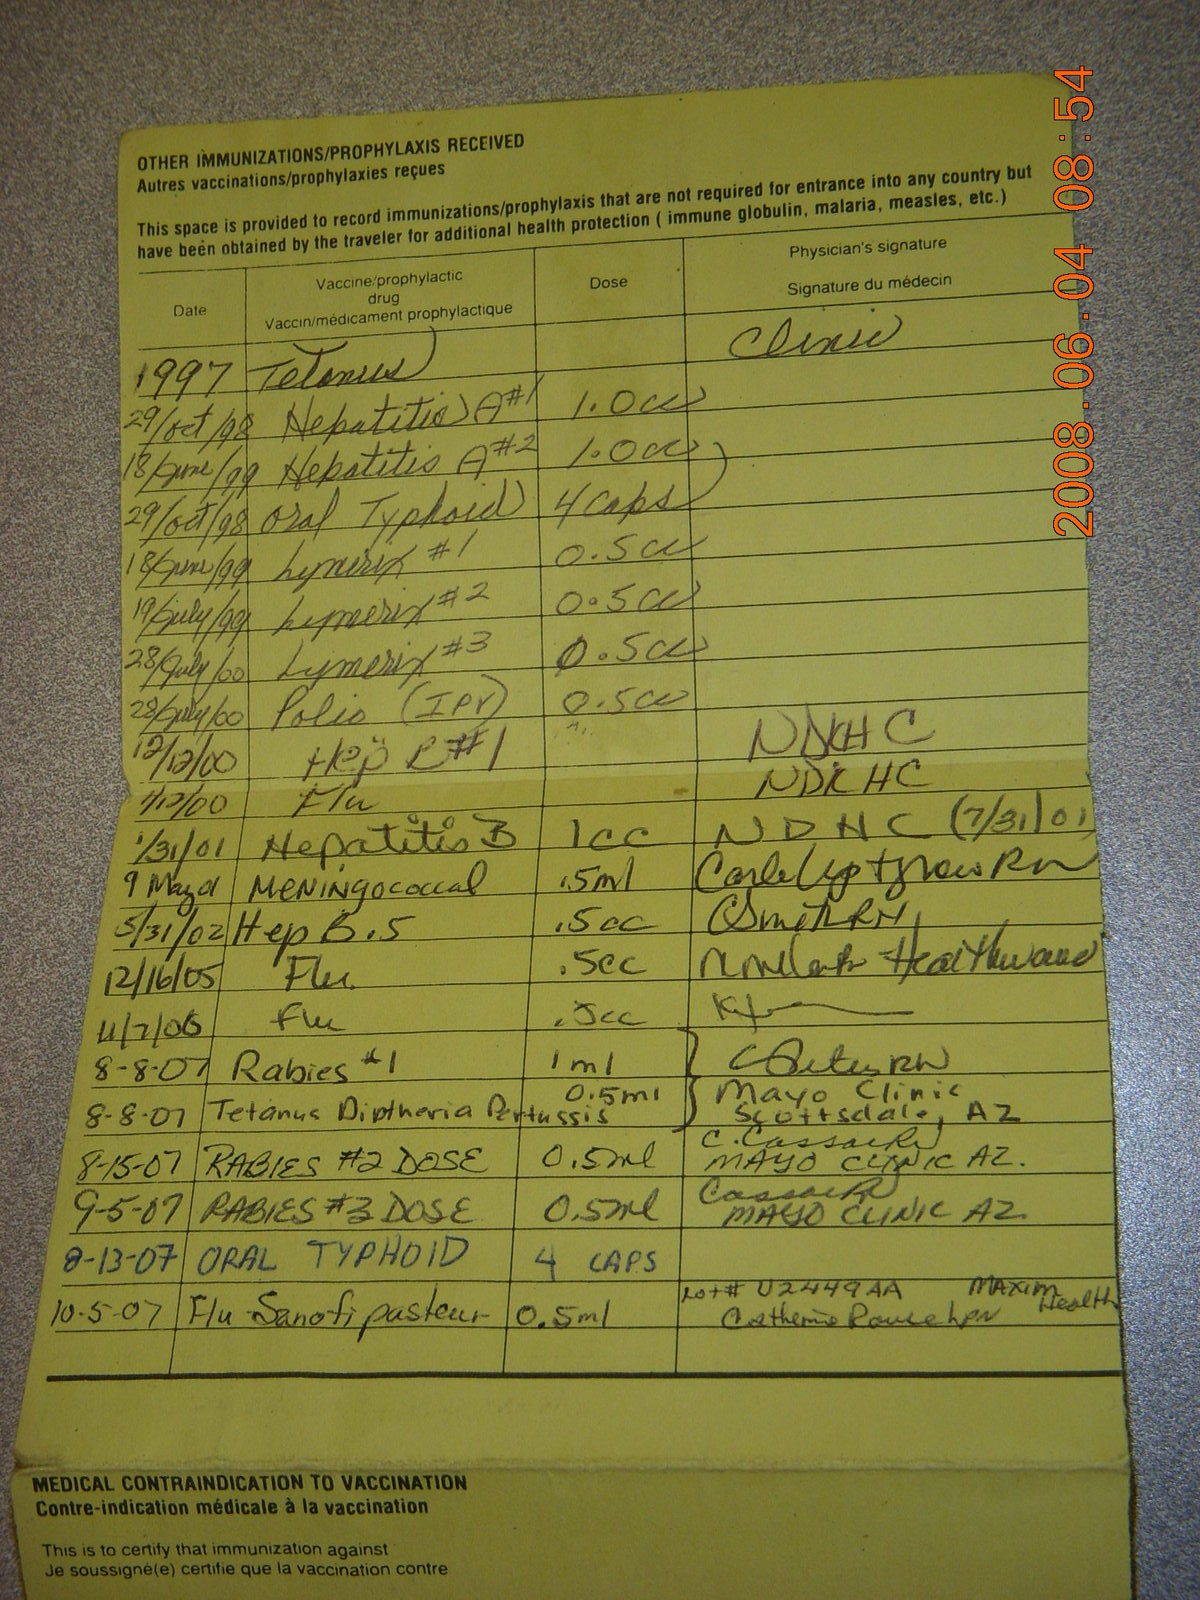 OTHER IMMUNIZATIONS/PROPHYLAXIS RECEIVED
Autres vaccinations/prophylaxies reçues
This space is provided to record immunizations/prophylaxis that are not required for entrance into any country but
have been obtained by the traveler for additional health protection ( immune globulin, malaria, measles, etc.)
Date
Vaccine/prophylactic
drug
Vaccin/médicament prophylactique
Dose
Physician's signature
Signature du médecin
1997 Tetanus Clinic
29/Oct/98 Hepatitis A #1 1.0cc
18/June/99 Hepatitis A #2 1.0cc
29/Oct/98 Oral Typhoid 4 caps
18/June/99 Lymerix #1 0.5cc
19/July/99 Lymerix #2 0.5cc
28/July/00 Lymerix #3 0.5cc
28/July/00 Polio (IPV) 0.5cc
12/12/00 Hep #1
/12/00 Flu
1/31/01 Hepatitis B 1cc NDHC (7/31/01
9 May MENINGOCOCCAL .5ml RN
5/31/02 Hep B .5 .5cc Smith RN
12/16/05 Flu .5cc
11/7/06 Flu .5cc
8-8-07 Rabies #1 1 ml RN
8-8-07 Tetanus Diptheria Pertussis 0.5ml Mayo Clinic
Scottsdale, AZ
8-15-07 RABIES #2 DOSE 0.5ml C. Cassa
MAYO CLINIC AZ.
9-5-07 RABIES #3 DOSE 0.5ml
MAYO CLINIC AZ
8-13-07 ORAL TYPHOID 4 CAPS
10-5-07 Flu Sanofi pasteur 0.5ml Lot# U2449AA Maxim Health
Catherine LPN
MEDICAL CONTRAINDICATION TO VACCINATION
Contre-indication médicale à la vaccination
This is to certify that immunization against
Je soussigné(e) certifie que la vaccination contre
2008.06.04 08:54